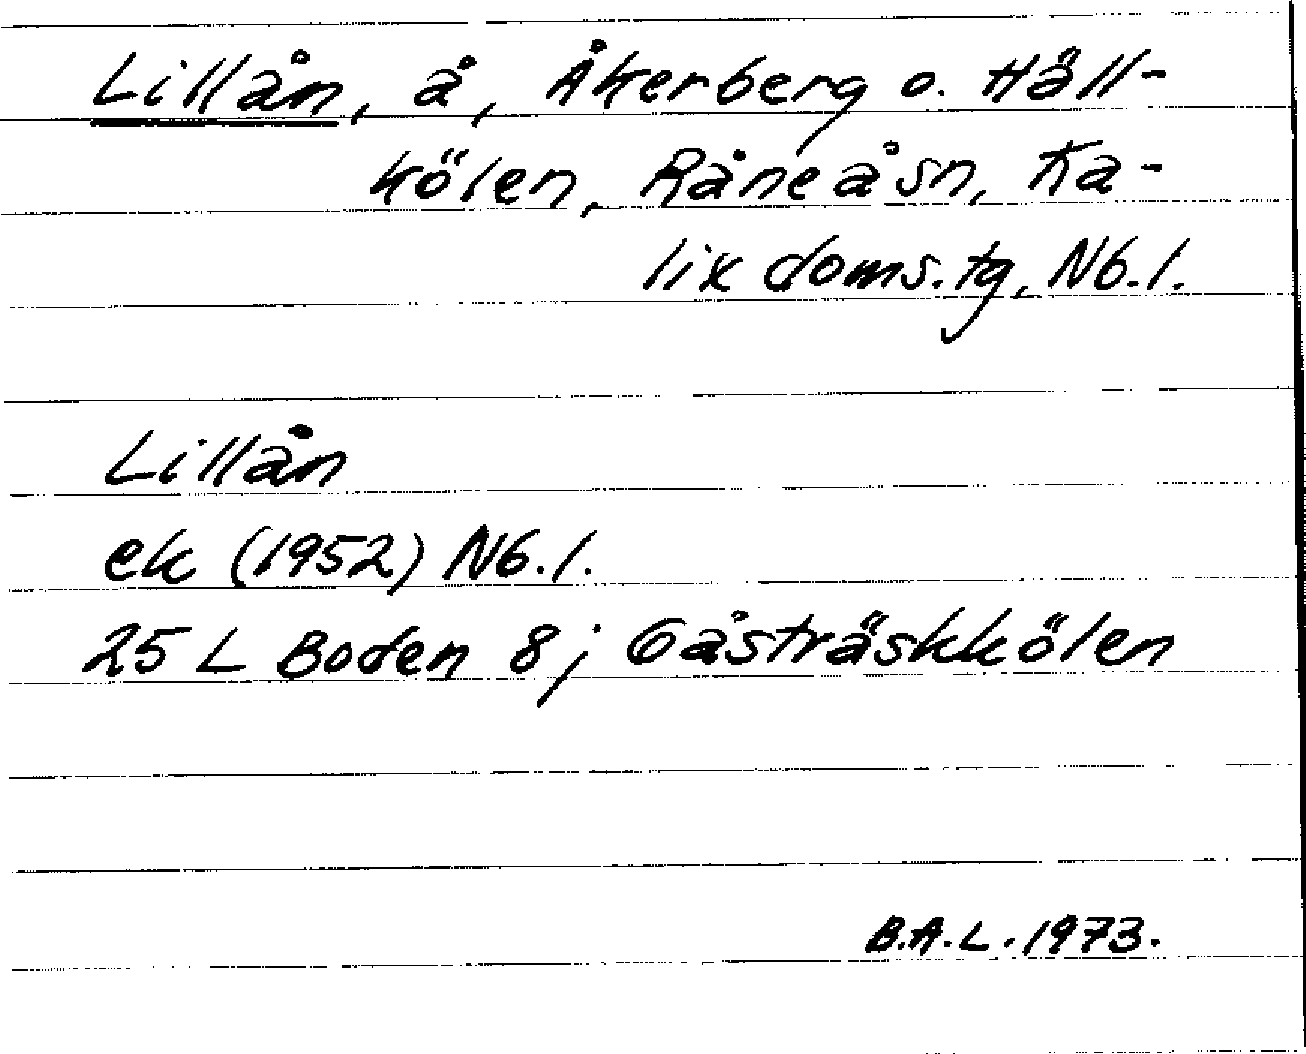 Lillån, å, Åkerberg o. Häll-
kölen, Råneå sn, Ka-
lix doms. tg, Nb. l.
Lillån
ek (1952) Nb. l.
25 L Boden 8j Gåsträskkölen
B.A.L. 1973.